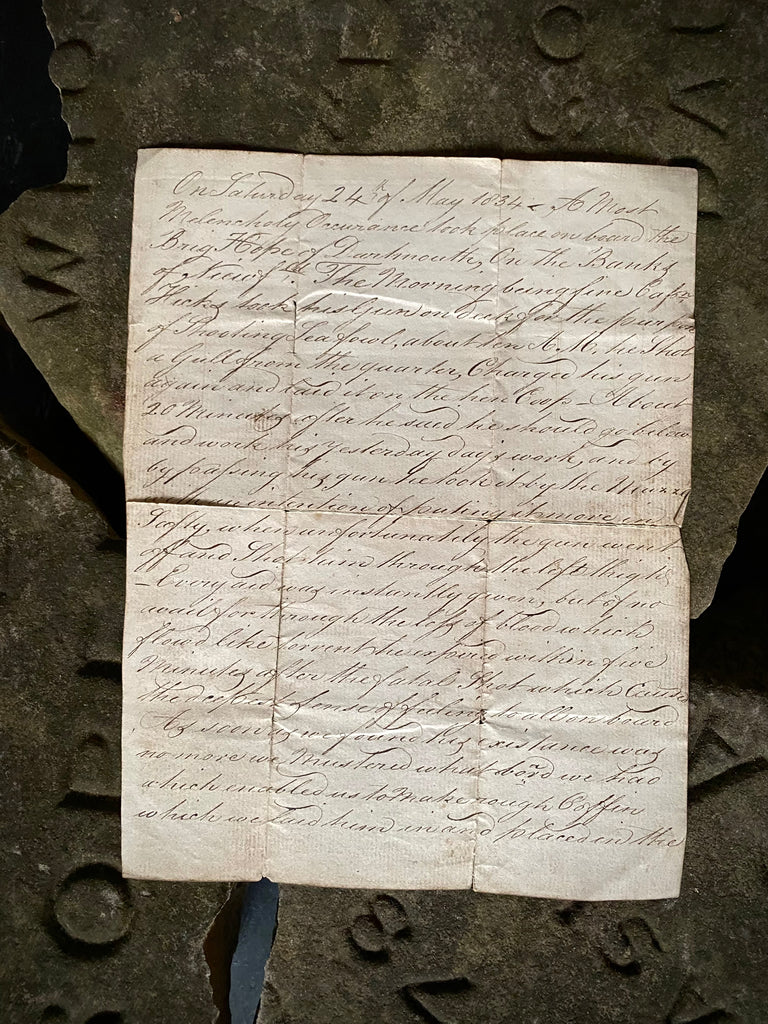 On Saturday 24th of May 1834 - A Most
Melancholy Occurance took place on board the
Brig Hope of Dartmouth, On the Banks
of Newfd. The Morning being fine Capn
Hicks took his Gun on deck for the purpose
of Shooting Sea fowl, about ten A.M. he Shot
a Gull from the quarter, Charged his gun
again and laid it on the hen Coop - About
20 Minutes after he said he should go below
and work his Yesterday day's work, and by
by passing his gun he took it by the Muzzle
intention of puting it more in
Safty, when unfortunately the gun went
off and Shot him through the left thigh
- Every aid was instantly given, but of no
avail for through the loss of blood which
flow'd like torrent he expired within five
Minutes after the fatal Shot which Caused
the deepest sense of feeling to all on board
As soon as we found his existance was
no more we Mustered what bord we had
which enabled us to Make rough Coffin
which we laid him in and placed in the